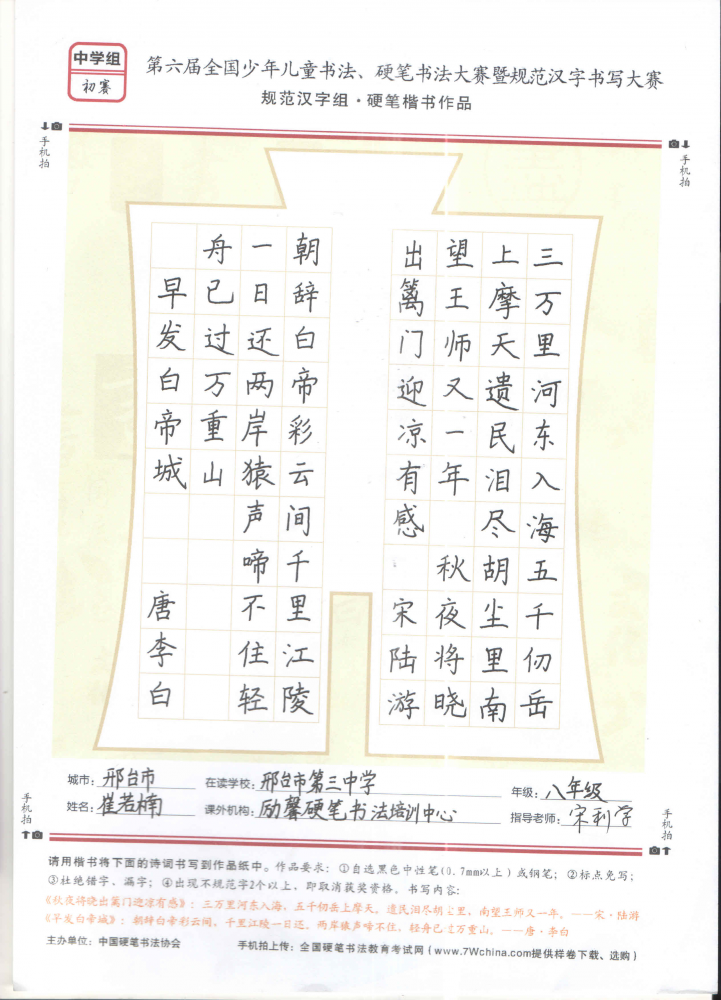 中学组
初赛
第六届全国少年儿童书法、硬笔书法大赛暨规范汉字书写大赛
规范汉字组·硬笔楷书作品
手机拍
手机拍
三万里河东入海五千仞岳
上摩天遗民泪尽胡尘里南
望王师又一年 秋夜将晓
出篱门迎凉有感 宋陆游
朝辞白帝彩云间千里江陵
一日还两岸猿声啼不住轻
舟已过万重山
早发白帝城 唐李白
城市：邢台市 在读学校：邢台市第三中学 年级：八年级
姓名：崔若楠 课外机构：励馨硬笔书法培训中心 指导老师：宋利学
手机拍
手机拍
请用楷书将下面的诗词书写到作品纸中。作品要求：①自选黑色中性笔(0.7mm以上)或钢笔；②标点免写；
③杜绝错字、漏字；④出现不规范字2个以上，即取消获奖资格。书写内容：
《秋夜将晓出篱门迎凉有感》：三万里河东入海，五千仞岳上摩天。遗民泪尽胡尘里，南望王师又一年。——宋·陆游
《早发白帝城》：朝辞白帝彩云间，千里江陵一日还。两岸猿声啼不住，轻舟已过万重山。——唐·李白
主办单位：中国硬笔书法协会 手机拍上传：全国硬笔书法教育考试网（www.7Wchina.com提供样卷下载、选购）